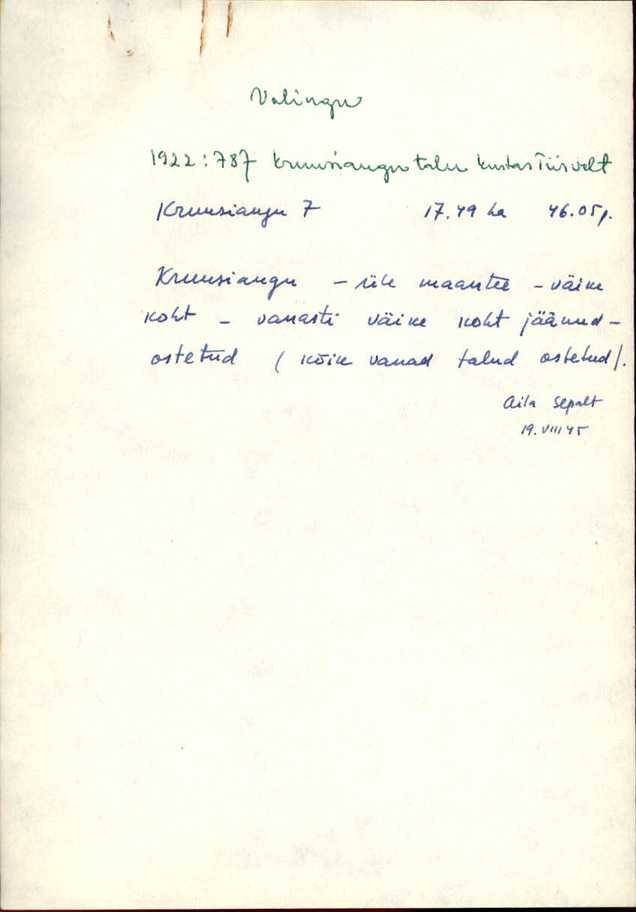 Valingu
1922:787 Kruusiangu talu Kustas Tiisvelt
Kruusiangu 7 17.49 ha 46.05 r.
Kruusiangu – üle maantee – väike
koht – vanasti väike koht jäänud –
ostetud (kõik vanad talud ostetud).
Aila Sepalt
19.VIII 45